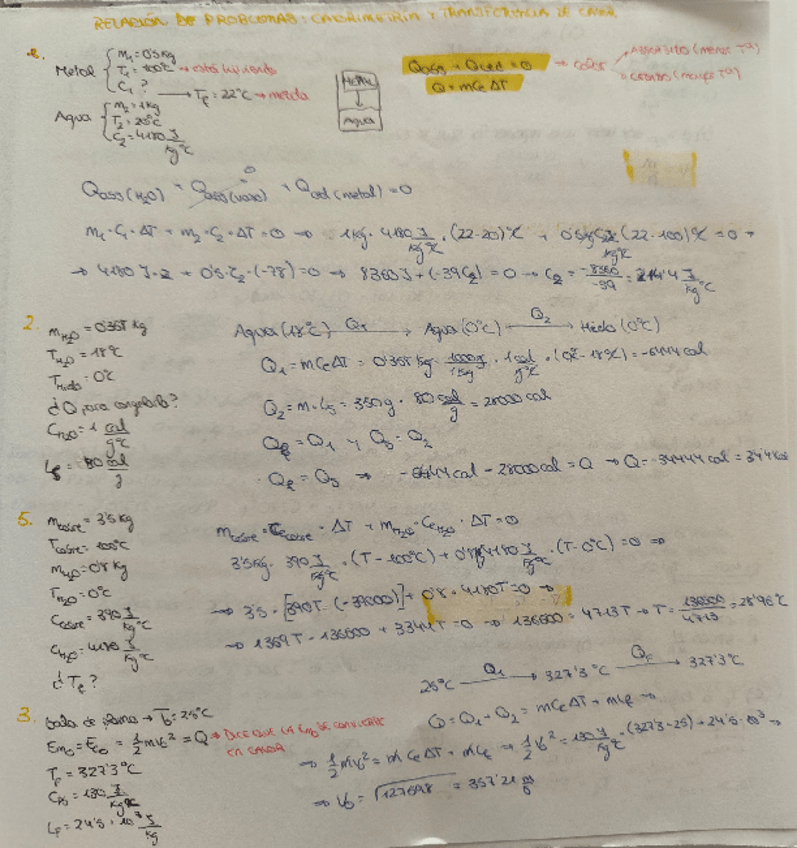 RELACIÓN DE PROBLEMAS: CALORIMETRÍA Y TRANSFERENCIA DE CALOR
Metal { m₁ = 0'5 kg
T₁ = 100°C → está hirviendo
C₁ ?
→ Tf = 22°C → mezcla
Agua { m₂ = 1 kg
T₂ = 20°C
C₂ = 4180 J/kg°C
METAL
AGUA
Qabs + Qced = 0 → calor
ABSORBIDO (MENOR Tª)
CEDIDO (MAYOR Tª)
Q = mCe ΔT
Qabs (H₂O) + Qabs (vaso) 0 + Qced (metal) = 0
m₁ · C₁ · ΔT + m₂ · C₂ · ΔT = 0 ⇒ 1kg · 4180 J/kg°C · (22-20)°C + 0'5kg C₂ J/kg°C (22-100)°C = 0 →
→ 4180 J · 2 + 0'5 · C₂ · (-78) = 0 → 8360 J + (-39C₂) = 0 → C₂ = -8360/-39 = 214'4 J/kg°C
2. mH₂O = 0'35 kg
TH₂O = 18°C
THielo = 0°C
¿Q para congelarlo?
CH₂O = 1 cal/g°C
Lf = 80 cal/g
Agua (18°C) Q₁ → Agua (0°C) Q₂ → Hielo (0°C)
Q₁ = mCe ΔT = kg · 1000g/1kg · 1 cal/g°C · (0°C - 18°C) = -6444 cal
Q₂ = m · Lf = 350g · 80 cal/g = 28000 cal
-6444 cal - 28000 cal = Q → Q = -34444 cal = 34'4 Kcal
5. mcobre = 3'5 kg
Tcobre = 100°C
mH₂O = 0'8 kg
TH₂O = 0°C
Ccobre = 390 J/kg°C
CH₂O = 4180 J/kg°C
¿Tf ?
mcobre · Cecobre · ΔT + mH₂O · CeH₂O · ΔT = 0
3'5kg · 390 J/kg°C · (T - 100°C) + 0'8kg 4180 J/kg°C · (T - 0°C) = 0 ⇒
→ 3'5 · [390T · (-39000)] + 0'8 · 4180T = 0 ⇒
→ 1369T - 136500 + 3344T = 0 ⇒ 136500 = 4713T → T = 136500/4713 = 28'96°C
3. bala de plomo → T₀ = 25°C
Em₀ = Ec₀ = ½mv₀² = Q → DICE QUE LA Em₀ SE CONVIERTE
EN CALOR
Tf = 327'3°C
CPb = 130 J/kg°C
Lf = 24'5 · 10³ J/kg
25°C Q₁ → 327'3°C Qf → 327'3°C
Q = Q₁ + Q₂ = mCe ΔT + mLf ⇒
⇒ ½mv₀² = mCe ΔT + mLf ⇒ ½v₀² = 130 J/kg°C · (327'3 - 25) + 24'5 · 10³ ⇒
⇒ V₀ = √127598 = 357'21 m/s